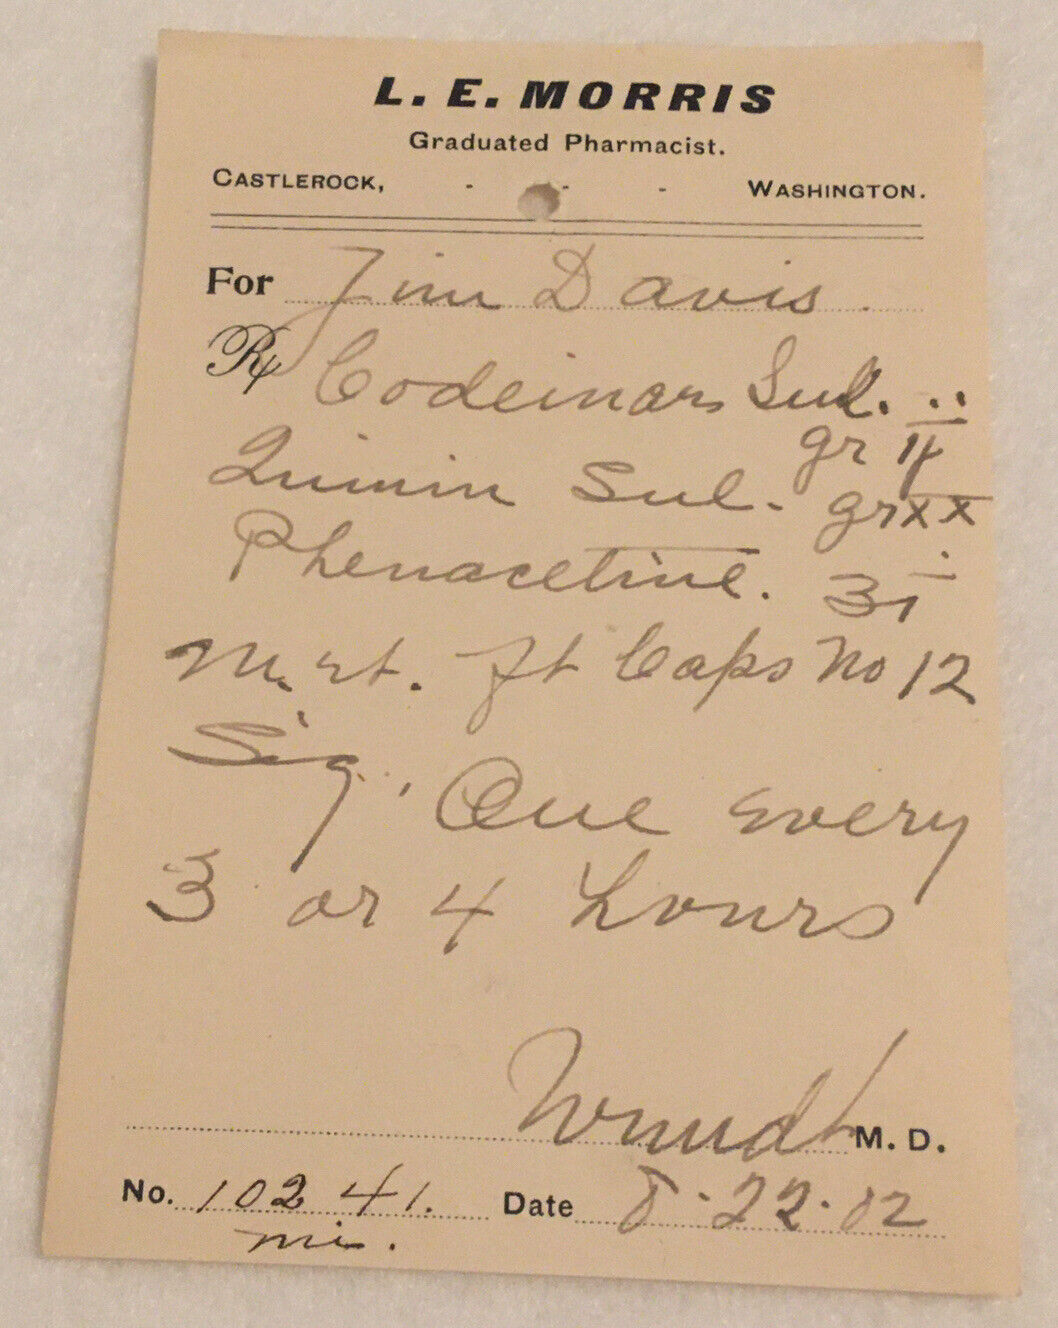 L. E. MORRIS
Graduated Pharmacist.
CASTLEROCK, - - - WASHINGTON.
For Jim Davis.
Rx Codeinar Sul.
gr ii
Quinin Sul. gr xx
Phenacetine. ʒi
M. et. ft Caps No 12
Sig. One every
3 or 4 hours
M. D.
No. 10241. Date 8-22-02